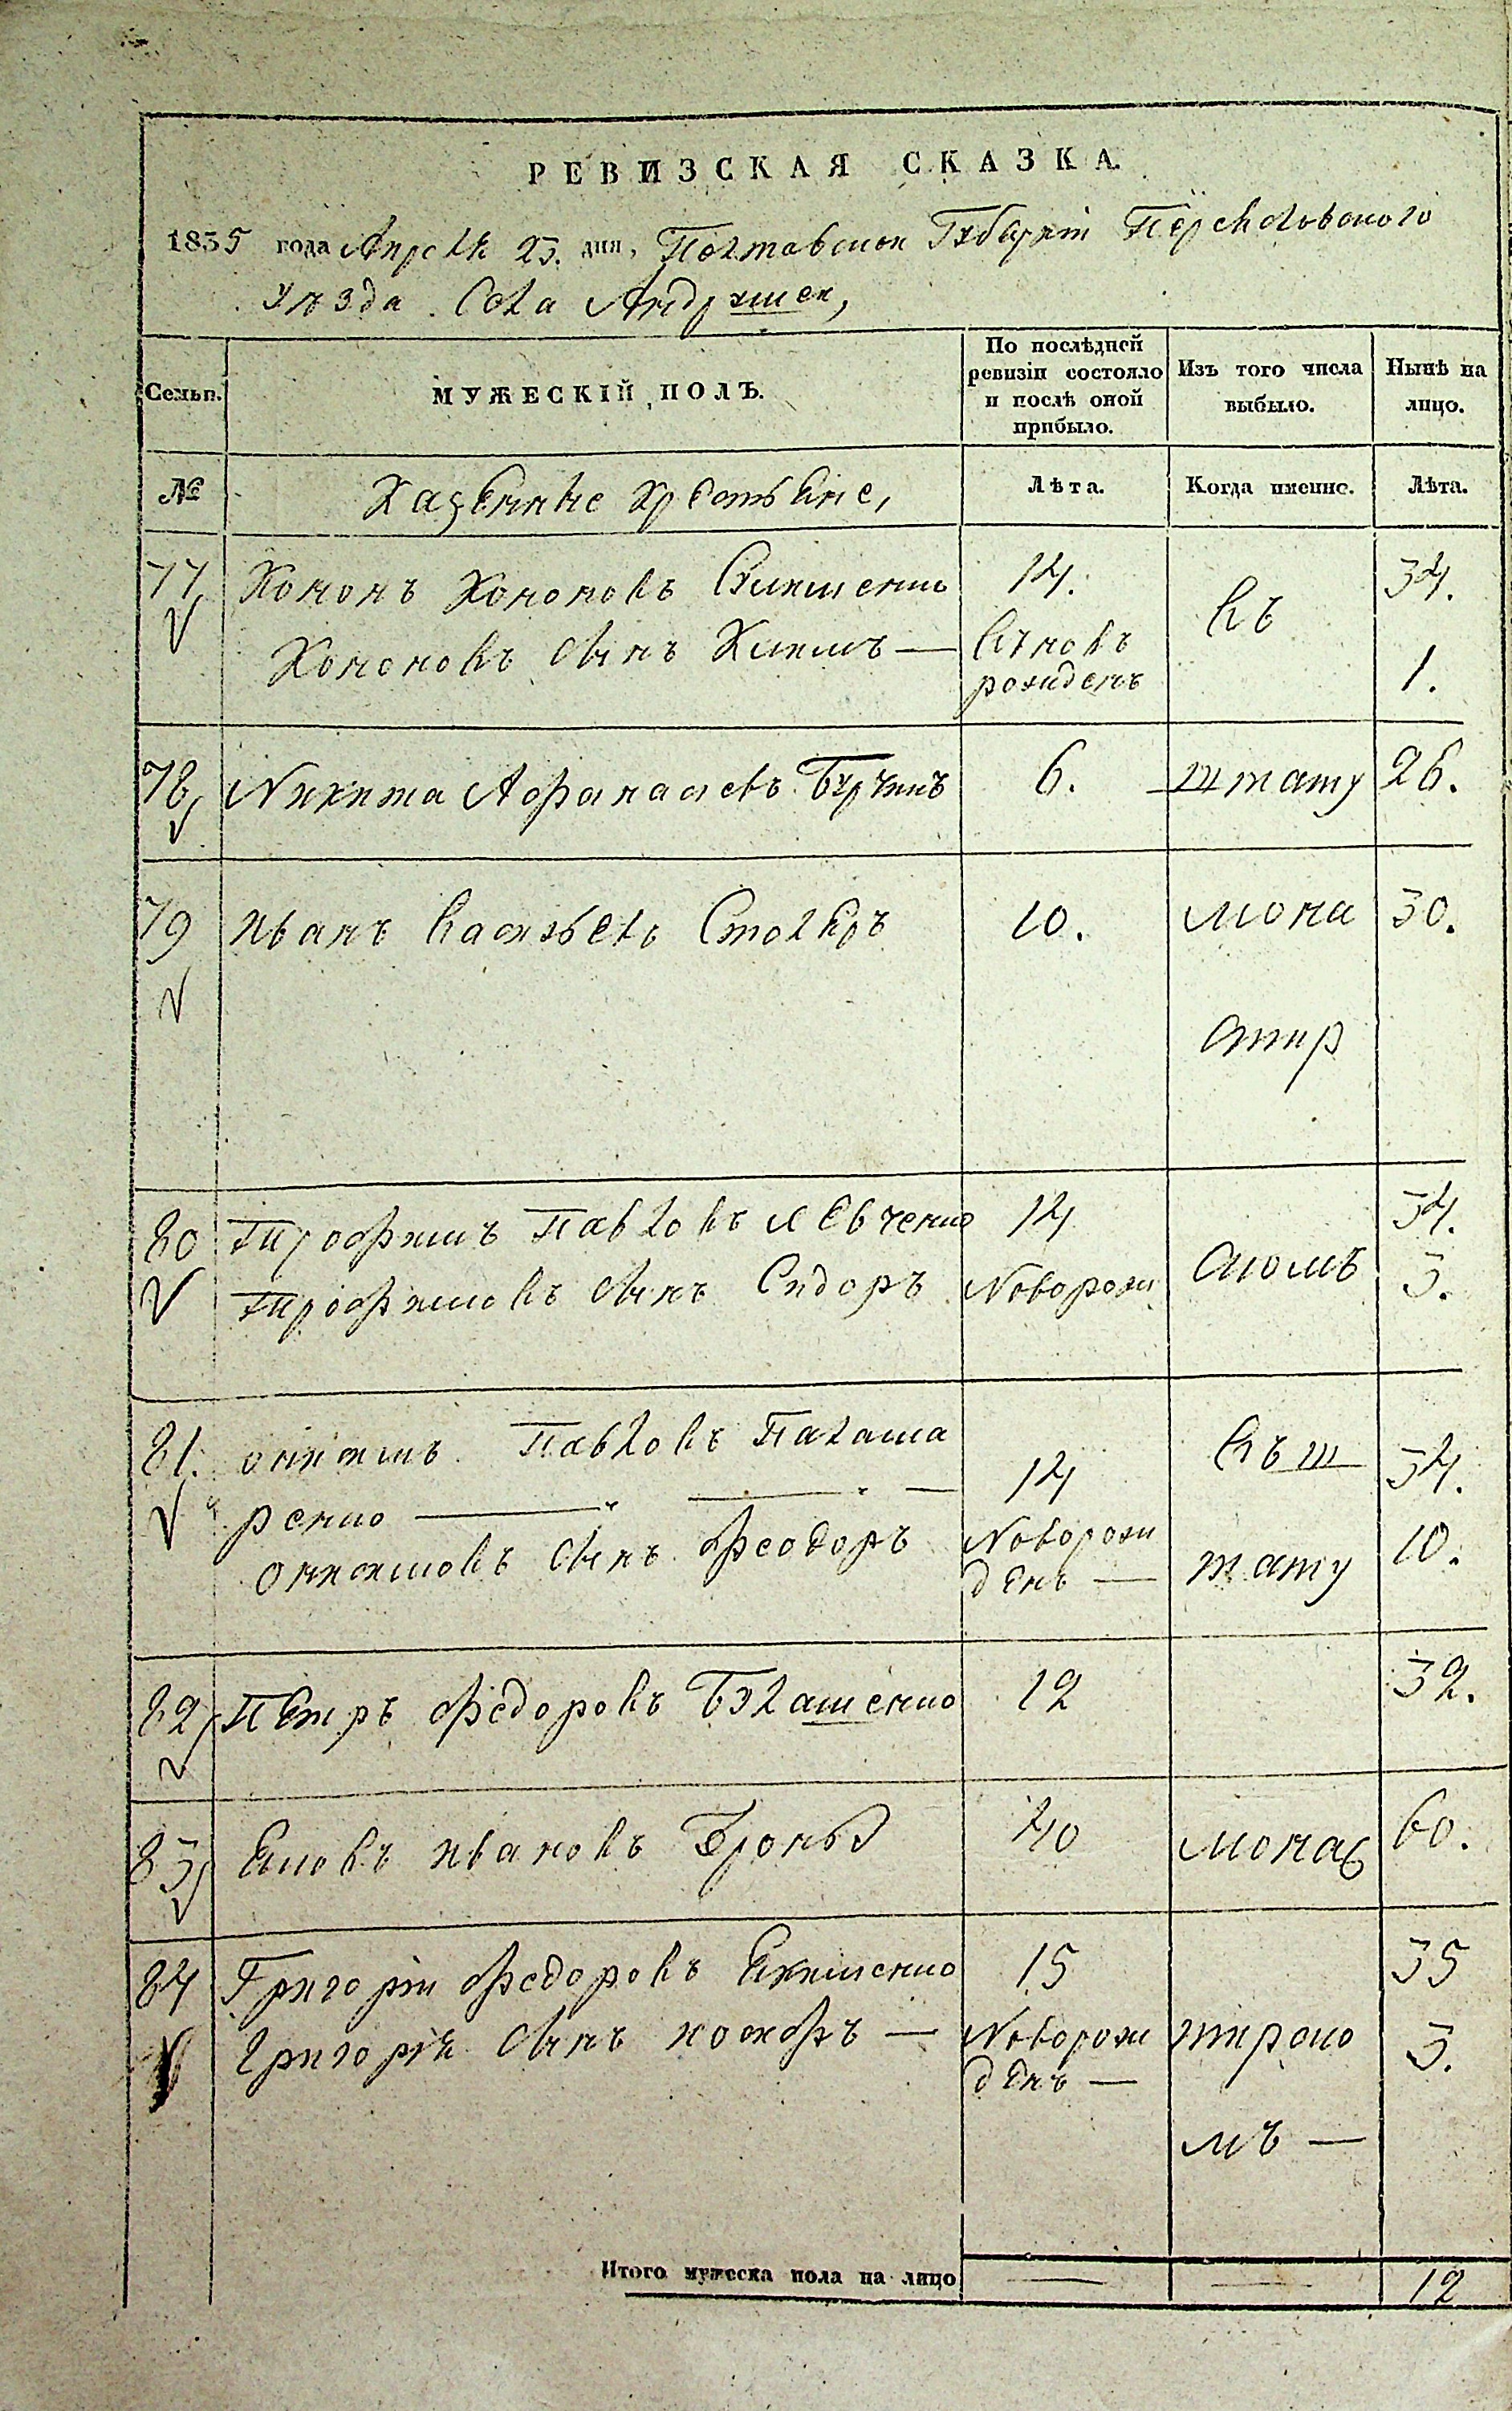 РЕВИЗСКАЯ СКАЗКА.
1835 года Апреля 23. дня, Полтавской Губерніи Переяславского
Уѣзда. Села Андрушек,
Семьи.
МУЖЕСКІЙ ПОЛЪ.
По послѣдней ревизіи состояло и послѣ оной прибыло.
Изъ того числа выбыло.
Нынѣ на лицо.
№
Казенные крестьяне,
Лѣта.
Когда именно.
Лѣта.
77 Кононъ Кононовъ 14. въ 34.
Кононовъ сынъ вновь рожденъ 1.
78 Никита Афанасьевъ 6. штату 26.
79 Иванъ Васильевъ Столяръ 10. мона 30.
стир
80 Трофимъ Павловъ Левченко 14 34.
Трофимовъ сынъ СидоръНоворож скомъ 3.
81. Павловъ Палама въ ш
ренко 14 34.
сынъ Феодоръ Новорож
денъ тату 10.
82 Петръ Федоровъ 12 32.
83 Яковъ Ивановъ 40 монас 60.
84 Григорій Федоровъ 15 35
Григорія сынъ Іосифъ Новорож тирско 3.
денъ
мъ
Итого мужеска пола на лицо 12